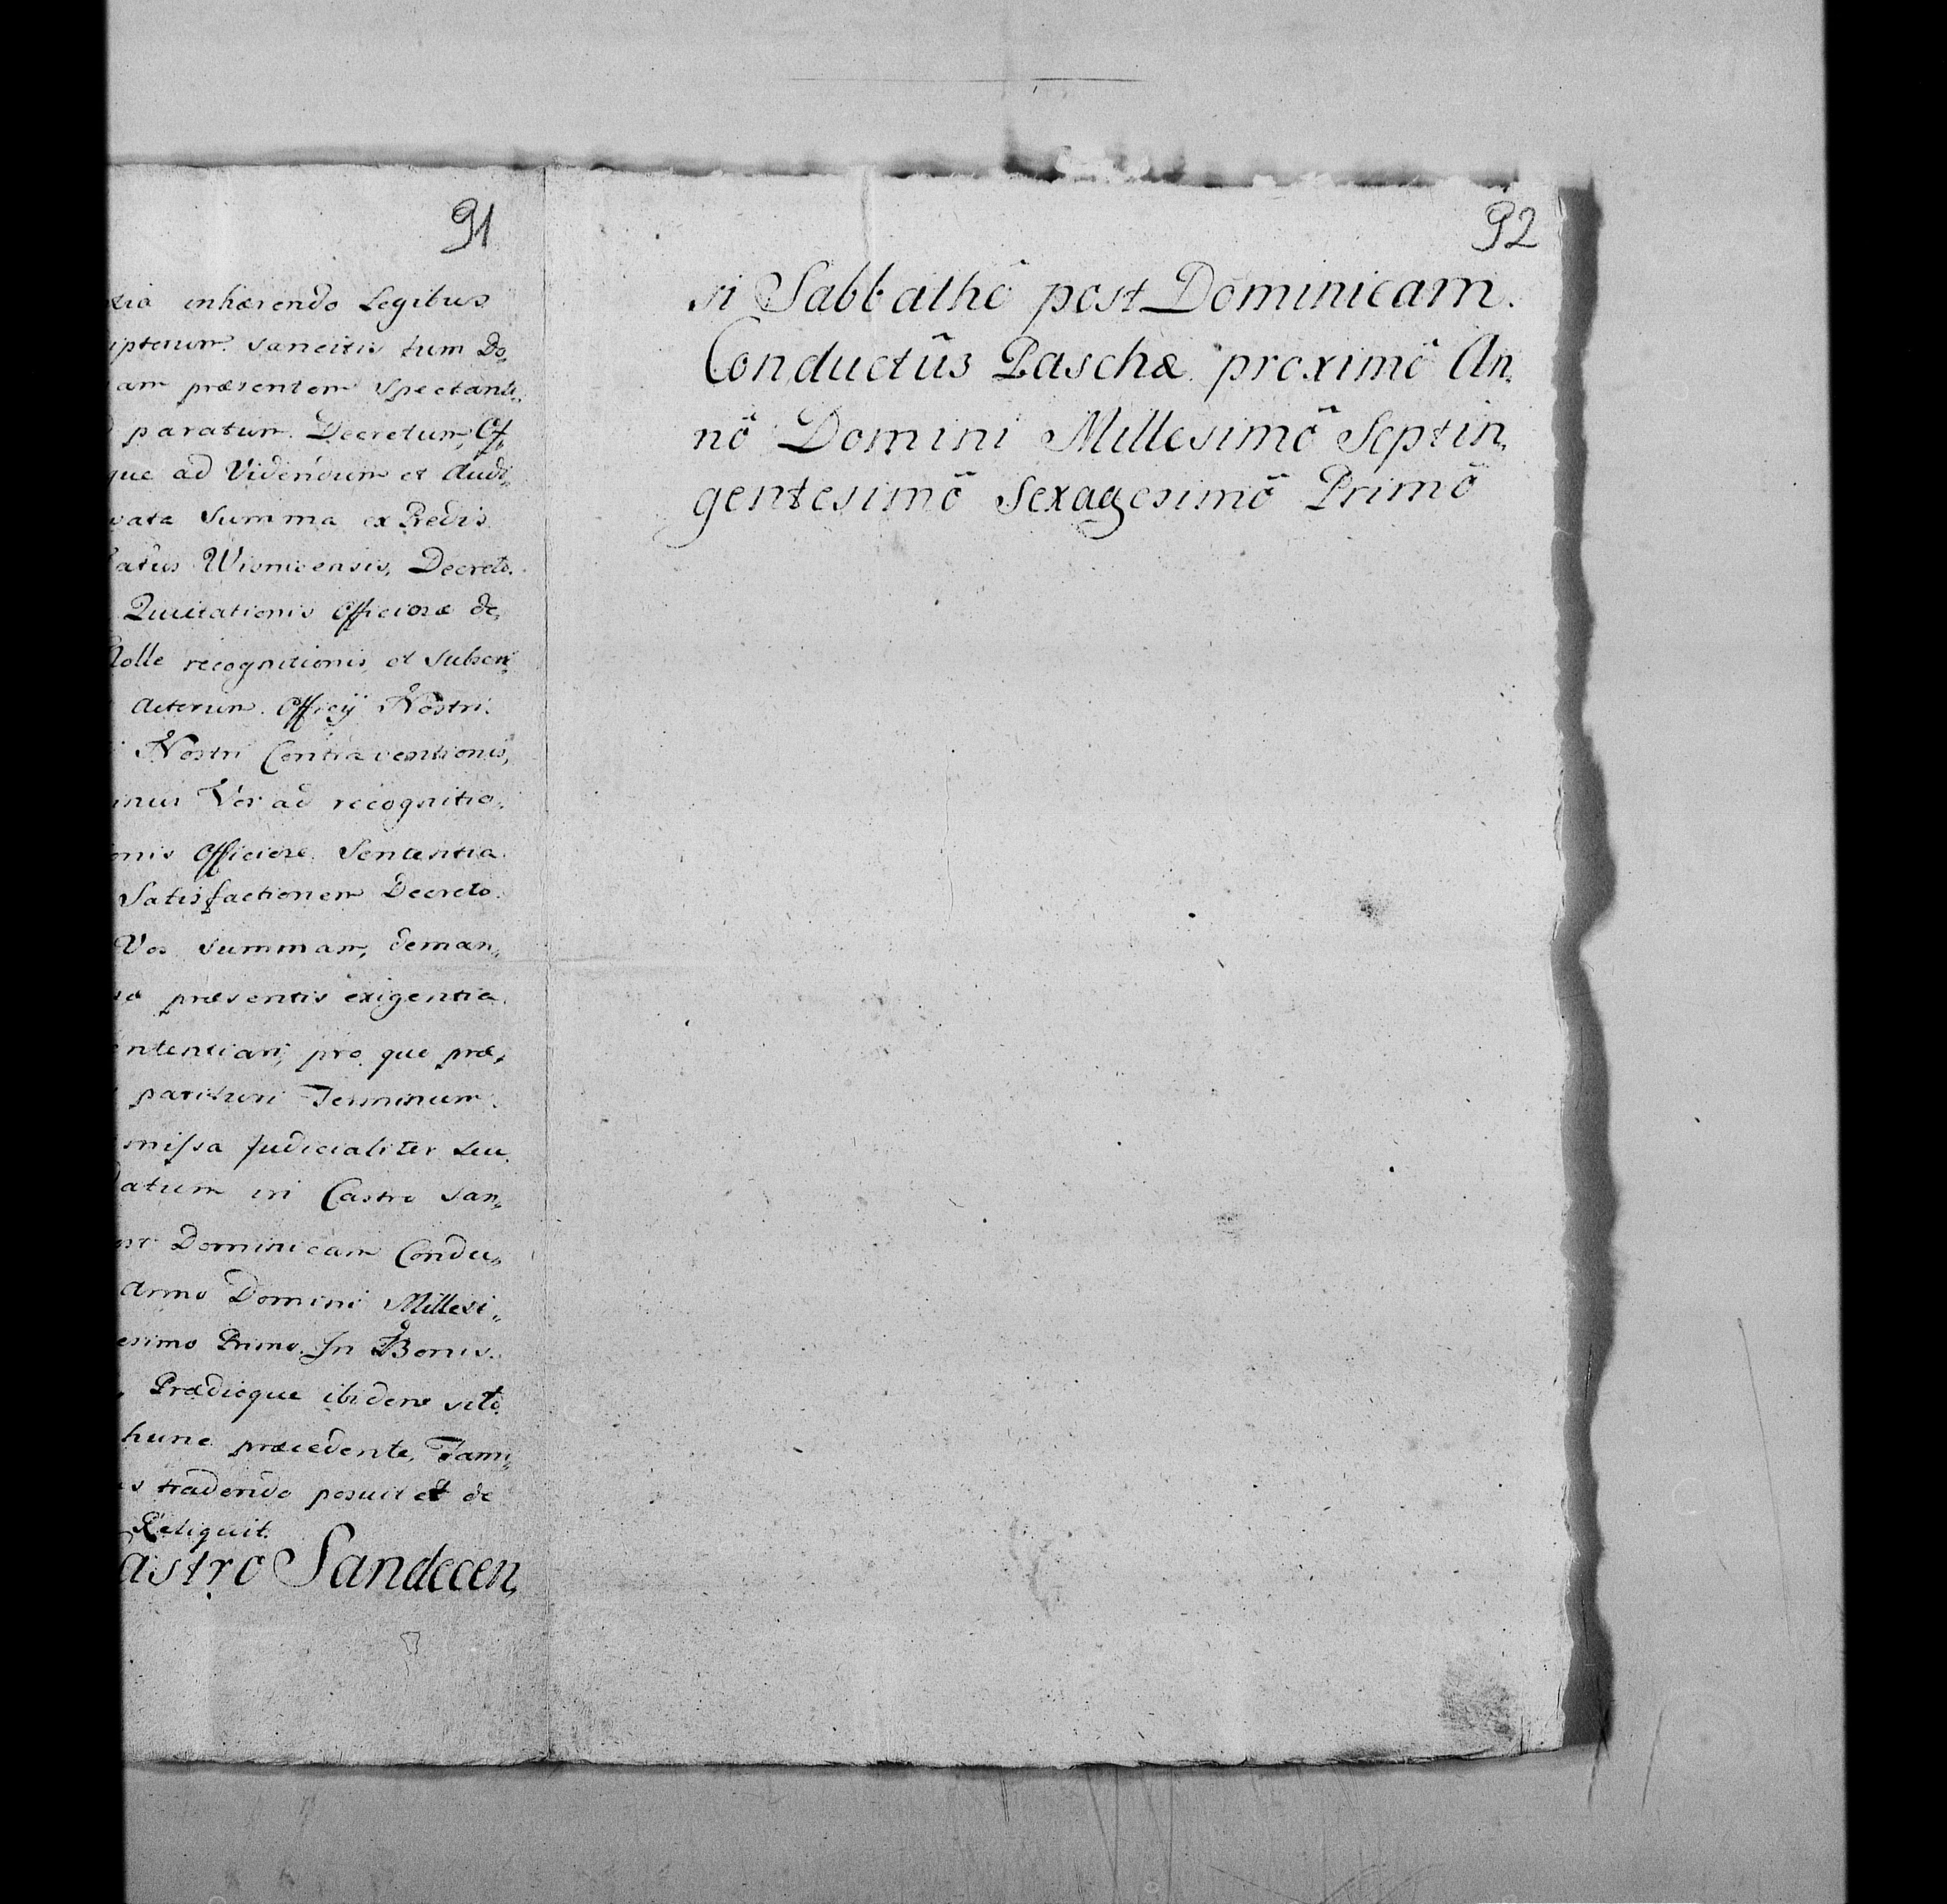 91
tia inhærendo Legibus
iptorum sancitis tum Do„
am præsentem Spectanti„
paratum. Decretum, Of„
que ad Videndum et Audi„
vata Summa ex Prædis
atûs Wisnicensis, Decreto.
Quietationis Officiosæ de„
Nolle recognitionis, et Subscri„
Actorum Officij Nostri.
Nostri Contraventionis,
inus Vos ad recognitio„
onis Officiose Sententia
Satisfactionem Decreto.
Vos summam, deman„
præsentis exigentia
ententiari, pro quo præ„
parituri Terminum.
missa Judicialiter seu
Datum in Castro San„
ost Dominicam Condu„
Anno Domini Millesi„
esimo Primo. In Bonis
Prædioque ibidem sito
hunc præcedente, Fami„
tradendo posuit et de
Reliquit.
astro Sandecen„
92
si Sabbathô post Dominicam.
Conductûs Paschæ proximô An„
nô Domini Millesimô Septin„
gentesimô Sexagesimô Primô